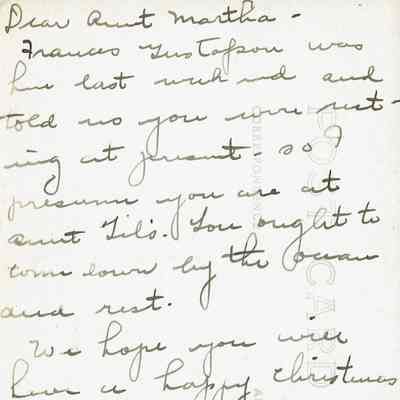 Dear Aunt Martha -
Frances Gustafson was
here last week end and
told us you were rest-
ing at present - so I
presume you are at
aunt Til's. You ought to
come down by the ocean
and rest.
We hope you will
have a happy Christmas